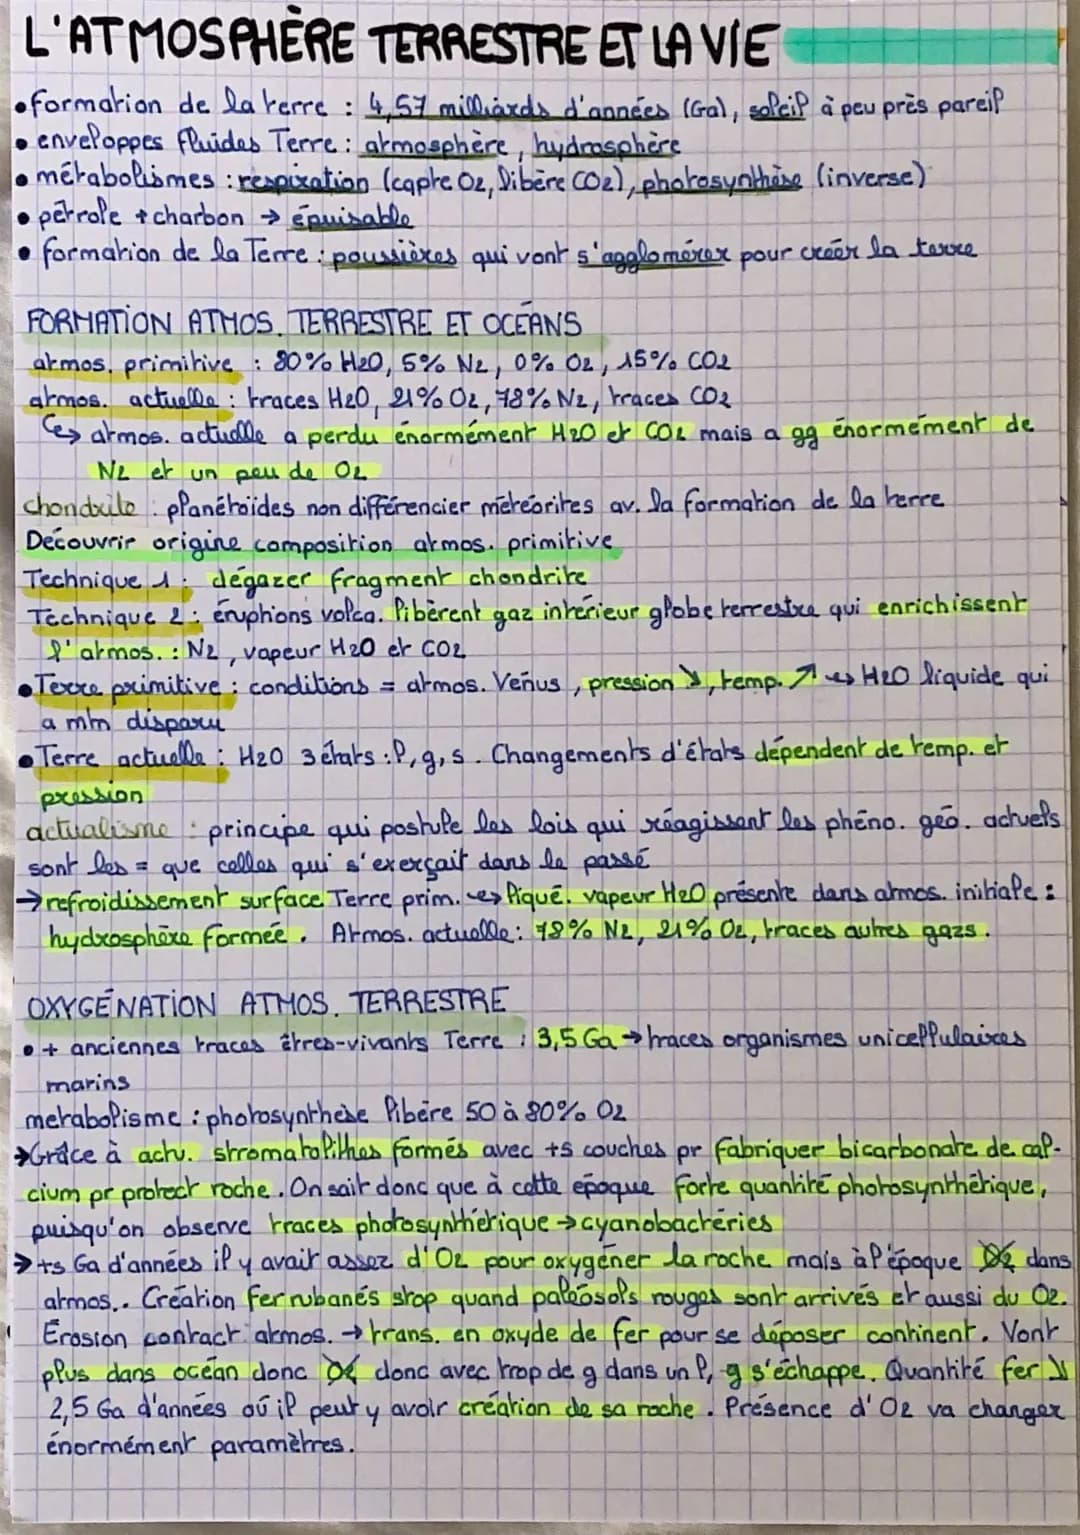 L'ATMOSPHÈRE TERRESTRE ET LA VIE
• formation de la terre : 4,57 milliards d'années (Ga), soleil à peu près pareil
• enveloppes fluides Terre : atmosphère, hydrosphère
• métabolismes : respiration (capte O2, libère CO2), photosynthèse (inverse)
• pétrole + charbon → épuisable
• formation de la Terre : poussières qui vont s'agglomérer pour créer la terre
FORMATION ATMOS. TERRESTRE ET OCÉANS
atmos. primitive : 80% H2O, 5% N2, 0% O2, 15% CO2
atmos. actuelle : traces H2O, 21% O2, 78% N2, traces CO2
↳ atmos. actuelle a perdu énormément H2O et CO2 mais a gg énormément de
N2 et un peu de O2
chondrite : planétoïdes non différencier météorites av. la formation de la terre
Découvrir origine composition atmos. primitive
Technique 1 : dégazer fragment chondrite
Technique 2 : éruptions volca. libèrent gaz intérieur globe terrestre qui enrichissent
l'atmos. : N2, vapeur H2O et CO2
• Terre primitive : conditions = atmos. Vénus, pression ↘, temp. ↗ ↔ H2O liquide qui
a mm disparu
• Terre actuelle : H2O 3 états : l, g, s. Changements d'états dépendent de temp. et
pression
actualisme : principe qui postule les lois qui réagissent les phéno. géo. actuels
sont les = que celles qui s'exerçait dans le passé
→ refroidissement surface Terre prim. ↔ liqué. vapeur H2O présente dans atmos. initiale :
hydrosphère formée. Atmos. actuelle : 78% N2, 21% O2, traces autres gazs.
OXYGÉNATION ATMOS. TERRESTRE
• + anciennes traces êtres-vivants Terre : 3,5 Ga → traces organismes unicellulaires
marins
metabolisme : photosynthèse libère 50 à 80% O2
→ Grâce à actv. stromatolithes formés avec +s couches pr fabriquer bicarbonate de cal-
cium pr protect roche. On sait donc que à cette époque forte quantité photosynthétique,
puisqu'on observe traces photosynthétique → cyanobactéries
→ +s Ga d'années il y avait assez d'O2 pour oxygéner la roche mais à l'époque O2 dans
atmos.. Création fer rubanés stop quand paléosols rouges sont arrivés et aussi du O2.
Érosion contact atmos. → trans. en oxyde de fer pour se déposer continent. Vont
plus dans océan donc O2 donc avec trop de g dans un l, g s'échappe. Quantité fer ↘
2,5 Ga d'années où il peut y avoir création de sa roche. Présence d'O2 va changer
énormément paramètres.